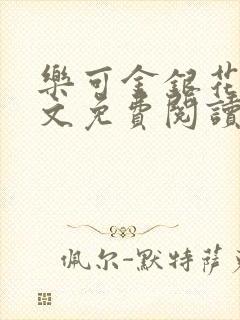 樂可金銀花
文免費閱讀
佩尔-默特萨